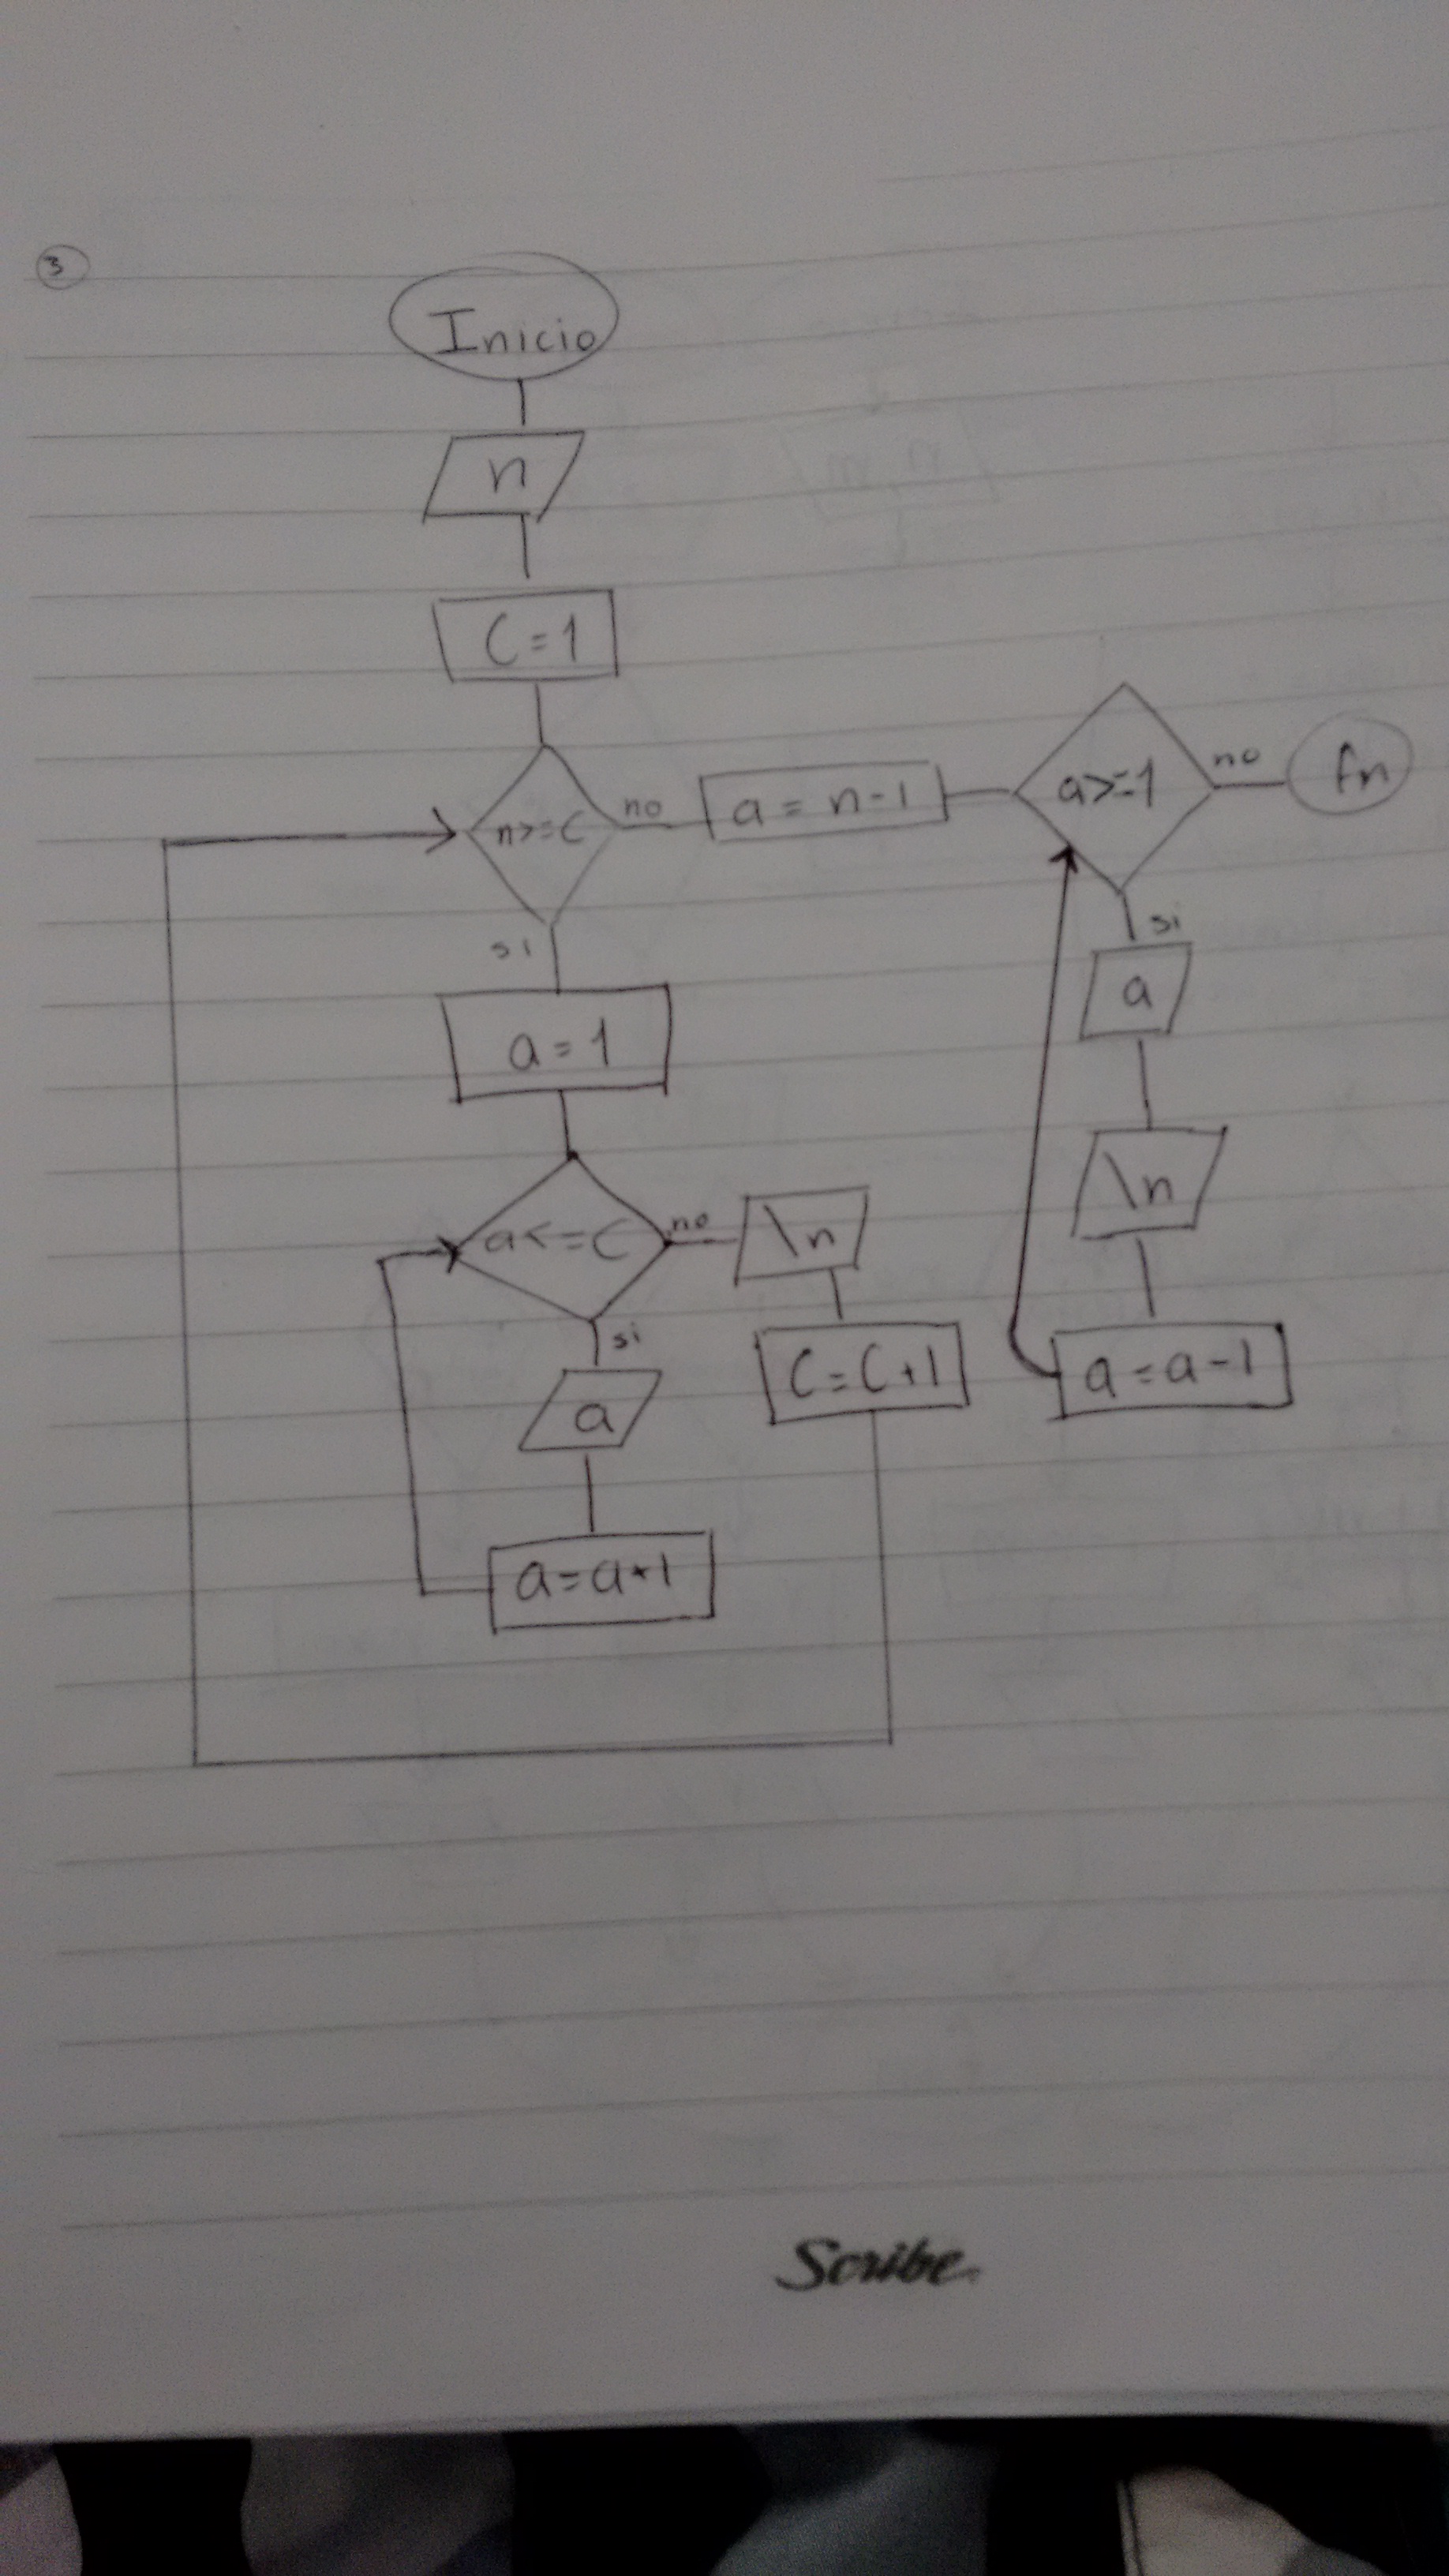 3
Inicio
n
C=1
n>=C
no
a = n-1
a>=1
no
fn
si
a=1
si
a
\n
a=a-1
a<=C
no
\n
C=C+1
si
a
a=a+1
Scribe